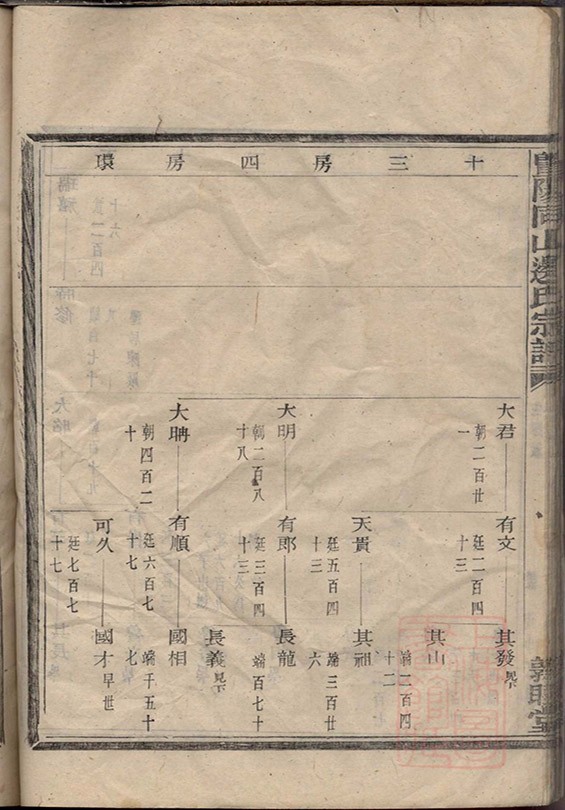 暨陽同山邊氏宗譜
敦睦堂
十三房四房環
大君
朝二百廿
一
有文
廷二百四
十三
其發
見下
其山
端二百四
十二
天貴
廷五百四
十三
其祖
端三百廿
六
大明
朝二百八
十八
有郎
廷三百四
十三
長龍
端百七十
長義
見下
大聘
朝四百二
十
有順
廷六百七
十七
國相
端千五十
七
可久
廷七百七
十七
國才
早世